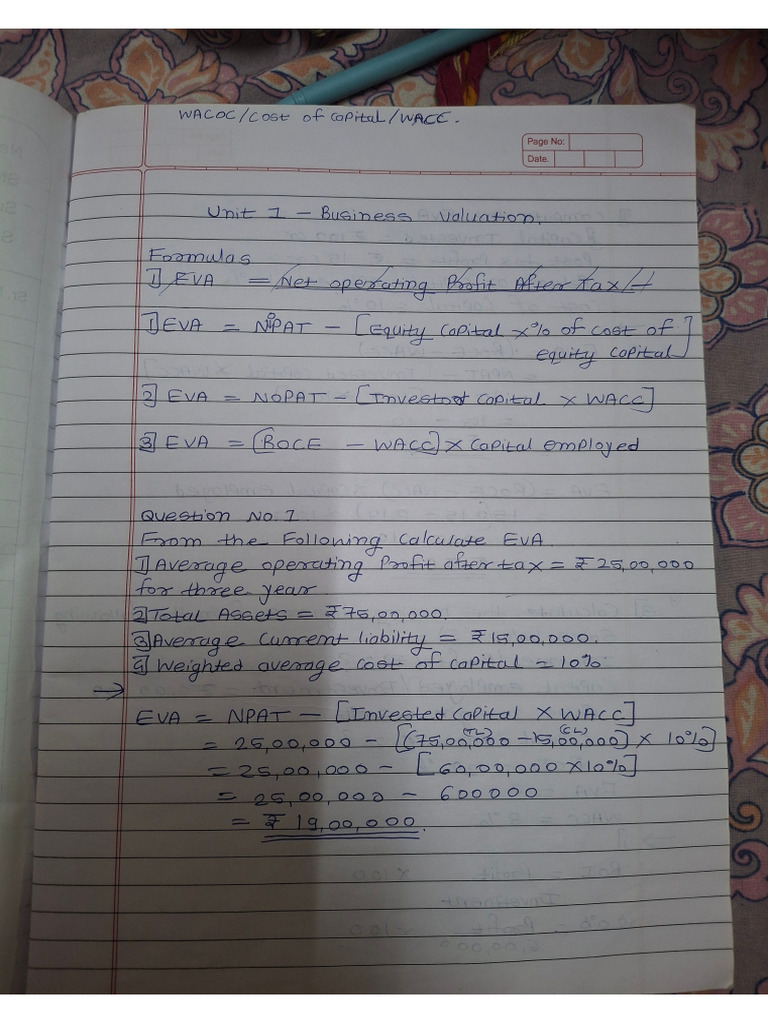 WACOC/Cost of Capital/WACC.
Page No:
Date.
Unit 1 - Business Valuation.
Formulas
1] EVA = Net operating Profit After tax / -
1] EVA = NoPAT - [Equity Capital x % of cost of
equity capital]
2] EVA = NOPAT - [Invested capital x WACC]
3] EVA = [ROCE - WACC] x Capital employed
Question No. 1.
From the Following Calculate EVA
1] Average operating Profit after tax = ₹ 25,00,000
for three year
2] Total Assets = ₹75,00,000.
3] Average Current liability = ₹ 15,00,000.
4] Weighted average cost of capital = 10%.
→
EVA = NPAT - [Invested Capital x WACC]
= 25,00,000 - [(75,00,000 - 15,00,000) x 10%]
= 25,00,000 - [60,00,000 x 10%]
= 25,00,000 - 600000
= ₹ 19,00,000.